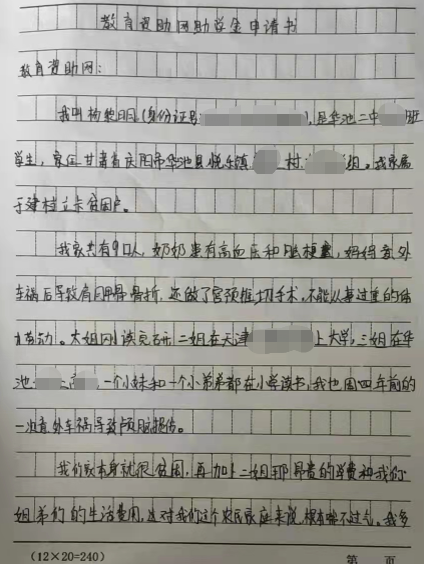 教育资助网助学金申请书
教育资助网:
我叫构艳明(身份证号: ),是华池二中 班
学生,家住甘肃省庆阳市华池县悦乐镇 村 组。我家属
于建档立卡贫困户。
我家共有9口人,奶奶患有高血压和脑梗塞,妈妈意外
车祸后导致肩胛骨骨折,还做了宫颈 切手术,不能从事过重的体
力劳动。大姐 读完 研,二姐在天津 上大学,三姐在华
池 高 ,一个小妹和一个小弟弟都在小学读书,我也因四年前的
一次意外车祸导致颅脑损伤。
我们家本身就很贫困,再加上二姐那昂贵的学费和我们
姐弟们的生活费用,这对我们这个农民家庭来说,根本喘不过气。我多
(12×20=240) 第 页